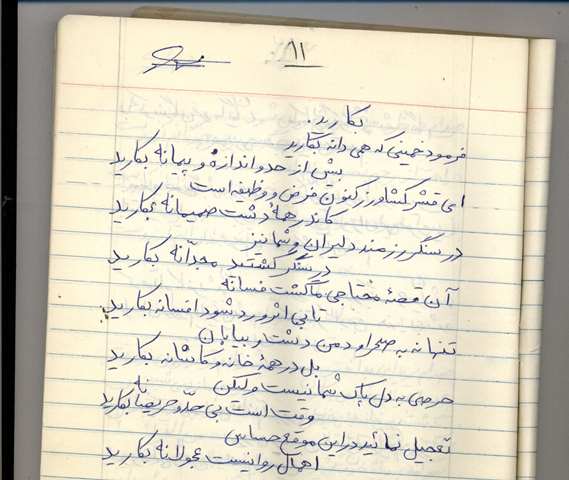 ۱۱
بکارید.
فرمود خمینی که همی دانه بکارید
بیش از حد و اندازه و پیمانه بکارید
ای قشر کشاورز کنون فرض و وظیفه است
کاندر همهٔ دشت صمیمانه بکارید
در سنگر رزمند دلیران و شما نیز
در سنگر کشتید مجدّانه بکارید
آن قصهٔ محتاجی ما گشت فسانه
تا بی اثر و رد شود افسانه بکارید
تنها نه به صحرا و دمن دشت و بیابان
بل در همهٔ خانه و کاشانه بکارید
حرصی به دل پاک شما نیست ولیکن
وقت است بی حدّ و حریصانه بکارید
تعجیل نمائید در این موقع حساس
اهمال روا نیست عجولانه بکارید